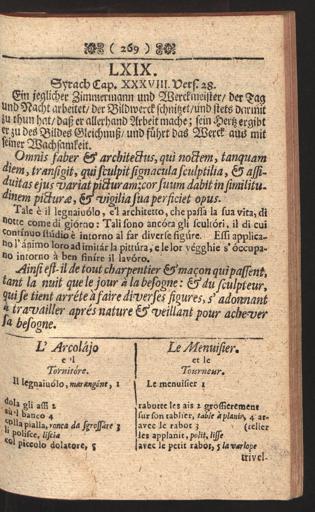 ( 269 )
LXIX.
Syrach Cap. XXXVIII. Vers. 28.
Ein jeglicher Zimmermann und Werckmeister/ der Tag
und Nacht arbeitet/ der Bildwerck schnitzet/ und stets damit
zu thun hat/ daß er allerhand Arbeit mache; sein Hertz ergibt
er zu des Bildes Gleichnuß/ und führt das Werck aus mit
seiner Wachsamkeit.
Omnis faber & architectus, qui noctem, tanquam
diem, transigit, qui sculpit signacula sculptilia, & assi-
duitas ejus variat picturam; cor suum dabit in similitu-
dinem picturæ, & vigilia sua perficiet opus.
Tale è il legnaiuólo, e'l architetto, che passa la sua vita, di
notte come di giórno: Tali sono ancóra gli scultóri, il di cui
contínuo studio è intorno à far diverse figúre. Essi applica-
no l'ánimo loro ad imitár la pittúra, e le lor végghie s'óccupa-
no intorno à ben finíre il lavóro.
Ainsi est-il de tout charpentier & maçon qui passent,
tant la nuit que le jour à la besogne: & du sculpteur,
qui se tient arréte à faire diverses figures, s'adonnant
à travailler aprés nature & veillant pour achever
sa besogne.
L' Arcolájo
e 'l
Tornitóre.
Il legnaiuólo, marangóne, 1
dola gli assi 2
sú'l banco 4
colla pialla, ronca da sgrossare 3
li polisce, liscia
col piccolo dolatore, 5
Le Menuisier.
et le
Tourneur.
Le menuisier 1
rabotte les ais 2 grossierement
sur son tablier, table à planir, 4 at-
avec le rabot 3 (telier
les applanit, polit, lisse
avec le petit rabot, 5 la varlope
trivel-